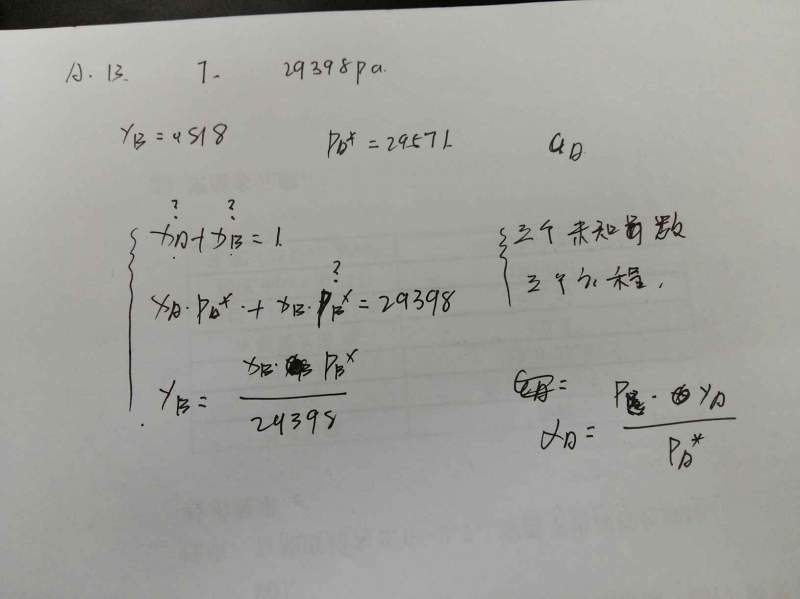 A. B. T. 29398pa.
yB = 0.818 PA* = 29571. aA
xA + xB = 1.
? ?
xA·PA* + xB·PB* = 29398
?
yB = xB· PB* / 29398
三个未知数
三个方程.
αA = P· yA / PA*